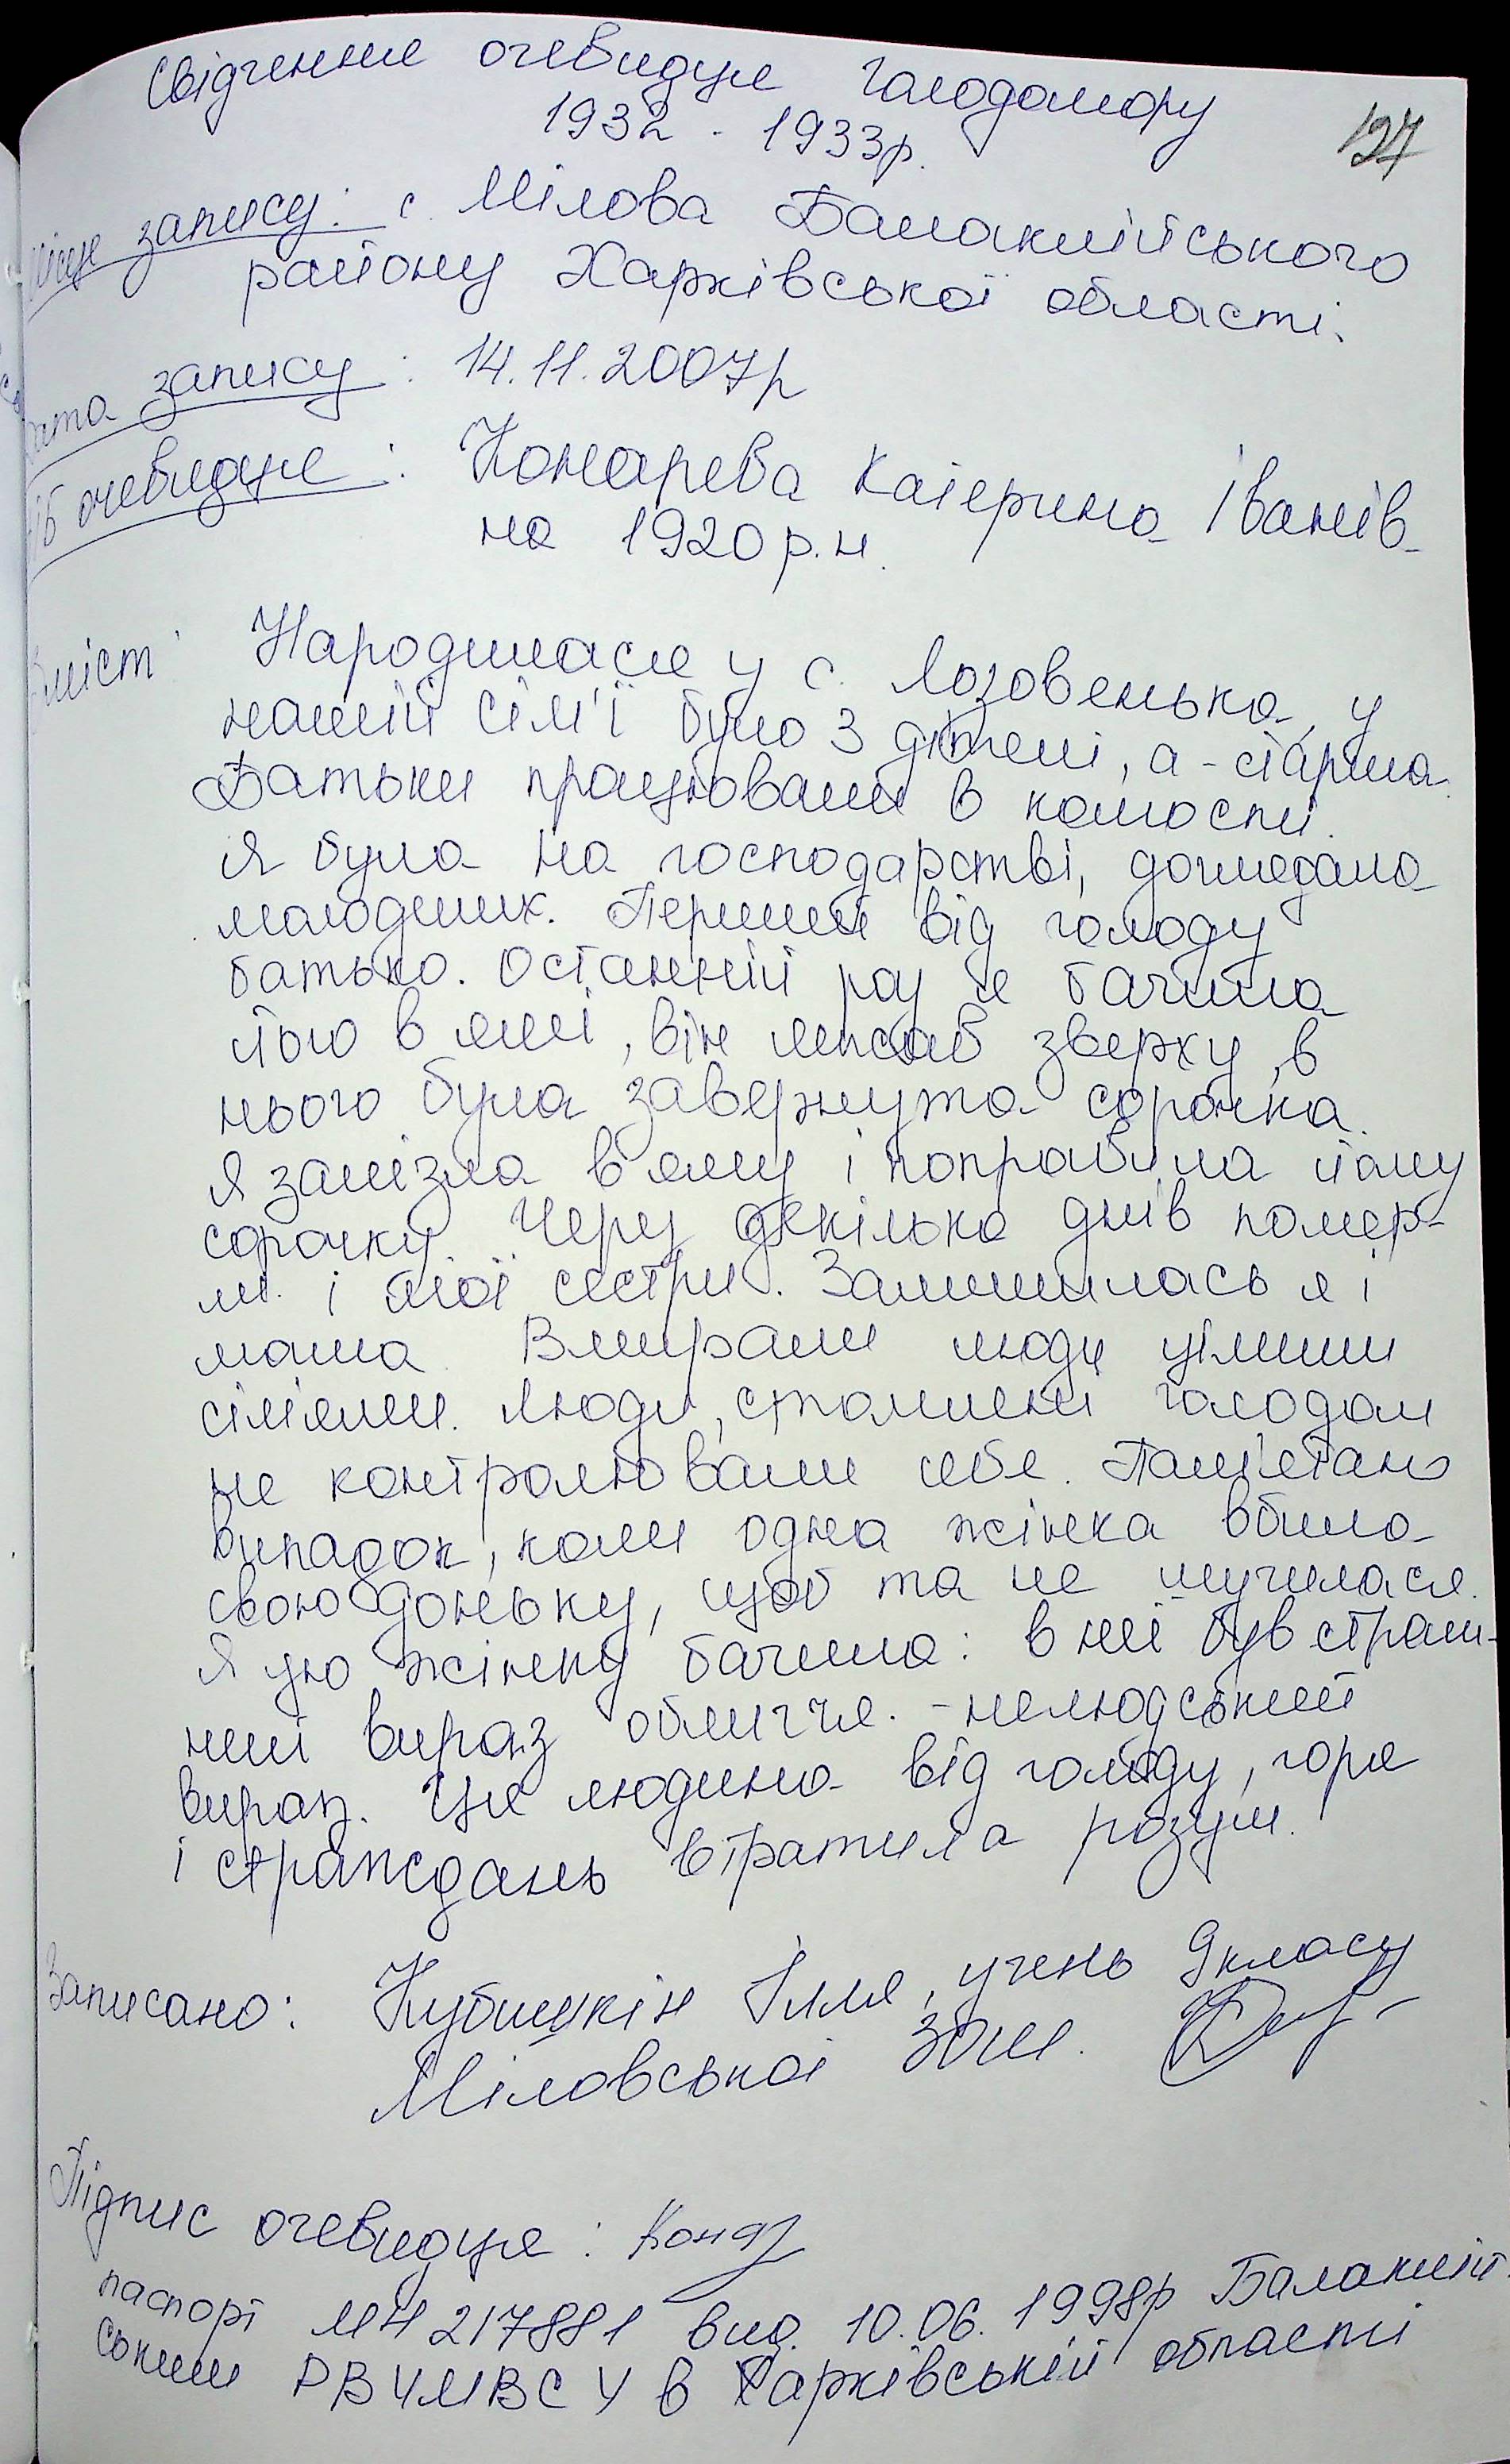 Свідчення очевидця голодомору
1932 - 1933р.
127
Місце запису: с. Мілова Балаклійського
району Харківської області.
Дата запису: 14.11.2007р
ПІБ очевидця: Конарева Катерина Іванів-
на 1920 р.н.
Зміст: Народилася у с. Лозовенька, у
нашій сім'ї було 3 дітей, я - старша.
Батьки працювали в колгоспі.
Я була на господарстві, доглядала
молодших. Перший від голоду
батько. Останній раз я бачила
його в ямі, він лежав зверху, в
нього була завернута сорочка.
Я залізла в яму і поправила йому
сорочку. Через декілька днів помер-
ли і мої сестри. Залишилась я і
мама. Вмирали люди цілими
сім'ями. Люди, стомлені голодом
не контролювали себе. Пам'ятаю
випадок, коли одна жінка вбила
свою доньку, щоб та не мучилася.
Я цю жінку бачила: в неї був страш-
ний вираз обличчя - нелюдський
вираз. Ця людина від голоду, горя
і страждань втратила розум.
Записано: Кубишкін Ілля, учень 9 класу
Міловської ЗОШ.
Підпис очевидця:
паспорт МН 217881 вид. 10.06.1998р Балаклій-
ським РВУМВСУ в Харківській області